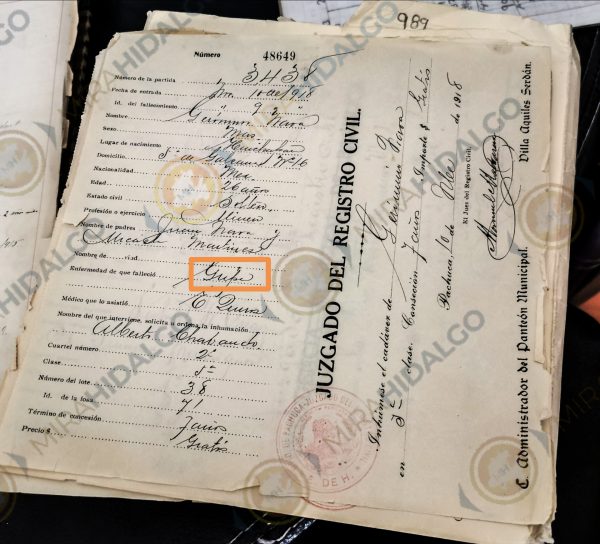 989
Número 48649
Número de la partida 3438
Fecha de entrada Nov. 10 de 1918
Id. del fallecimiento " 9 "
Nombre Gerónimo Nava
Sexo Mas.
Lugar de nacimiento
Domicilio 5ª de Galeana Nº 216
Nacionalidad Mex.
Edad 26 años
Estado civil Soltero
Profesión o ejercicio Minero
Nombre de padres Juan Nava y
Micaela Martinez
Nombre de viud
Enfermedad de que falleció Gripe
Médico que lo asistió
Nombre del que interviene, solicita u ordena la inhumación.
Alberto
Cuartel número 2º
Clase 5ª
Número del lote 38
Id. de la fosa 71
Término de concesión 7 años
Precio $ Gratis
JUZGADO DEL REGISTRO CIVIL.
Inhúmese el cadáver de Gerónimo Nava
en 5ª clase. Conseción 7 años Importe $ Gratis
Pachuca, 10 de Nov. de 1918
El Juez del Registro Civil.
C. Administrador del Panteón Municipal. Villa Aquiles Serdán.
DE H.
MIRAHIDALGO